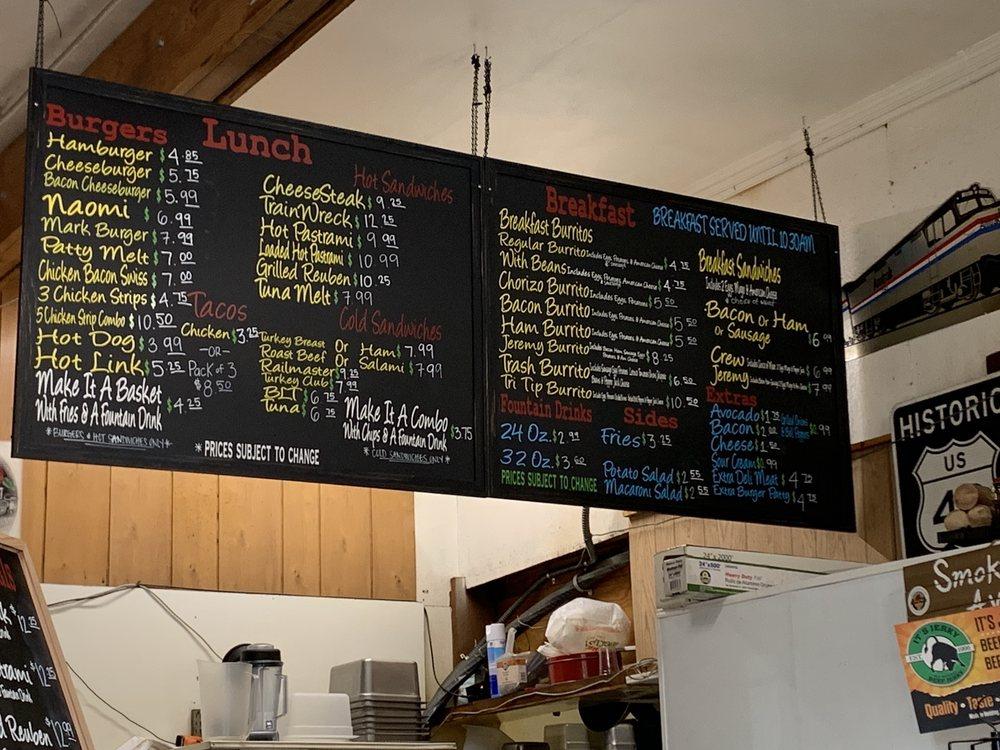 Lunch
Burgers
Hamburger $4.85
Cheeseburger $5.75
Bacon Cheeseburger $5.99
Naomi $6.99
Mark Burger $7.99
Patty Melt $7.00
Chicken Bacon Swiss $7.00
3 Chicken Strips $4.75
5 Chicken Strip Combo $10.50
Hot Dog $3.99
Hot Link $5.25
Make It A Basket
With Fries & A Fountain Drink $4.25
*BURGERS & HOT SANDWICHES ONLY*
Tacos
Chicken $3.25
-OR-
Pack of 3
$8.50
Hot Sandwiches
CheeseSteak $9.25
TrainWreck $12.25
Hot Pastrami $9.99
Loaded Hot Pastrami $10.99
Grilled Reuben $10.25
Tuna Melt $7.99
Cold Sandwiches
Turkey Breast or Ham $7.99
Roast Beef or Salami $7.99
Railmaster $9.25
Turkey Club
BLT $6
Tuna $6.75
Make It A Combo
With Chips & A Fountain Drink $3.75
*COLD SANDWICHES ONLY*
*PRICES SUBJECT TO CHANGE
Breakfast
BREAKFAST SERVED UNTIL 10:30AM
Breakfast Burritos
Regular Burrito Includes Eggs, Potatoes & American Cheese $4
With Beans Includes Eggs, Potatoes & American Cheese $4.75
Chorizo Burrito Includes Eggs, Potatoes & American Cheese $5.50
Bacon Burrito Includes Eggs, Potatoes & American Cheese $5.50
Ham Burrito Includes Eggs, Potatoes & American Cheese $5
Jeremy Burrito $8.25
Trash Burrito $6.50
Tri Tip Burrito $10.50
Breakfast Sandwiches
Includes 2 Eggs Mayo & American Cheese
Bacon Or Ham
or Sausage $6.99
Crew $6
Jeremy $7.99
Extras
Avocado $1
Bacon $2
Cheese $1
Sour Cream $.99
Extra Deli Meat $4.75
Extra Burger Patty $4.75
Fountain Drinks
24 Oz. $2.99
32 Oz. $3.60
PRICES SUBJECT TO CHANGE
Sides
Fries $3.25
Potato Salad $2.55
Macaroni Salad $2.55
HISTORIC
US
24"x500'
Heavy Duty
Smok
IT'S JERKY
EST
1996
IT'S
BEE
BE
Quality • Taste
$12
$12
Reuben $12.99